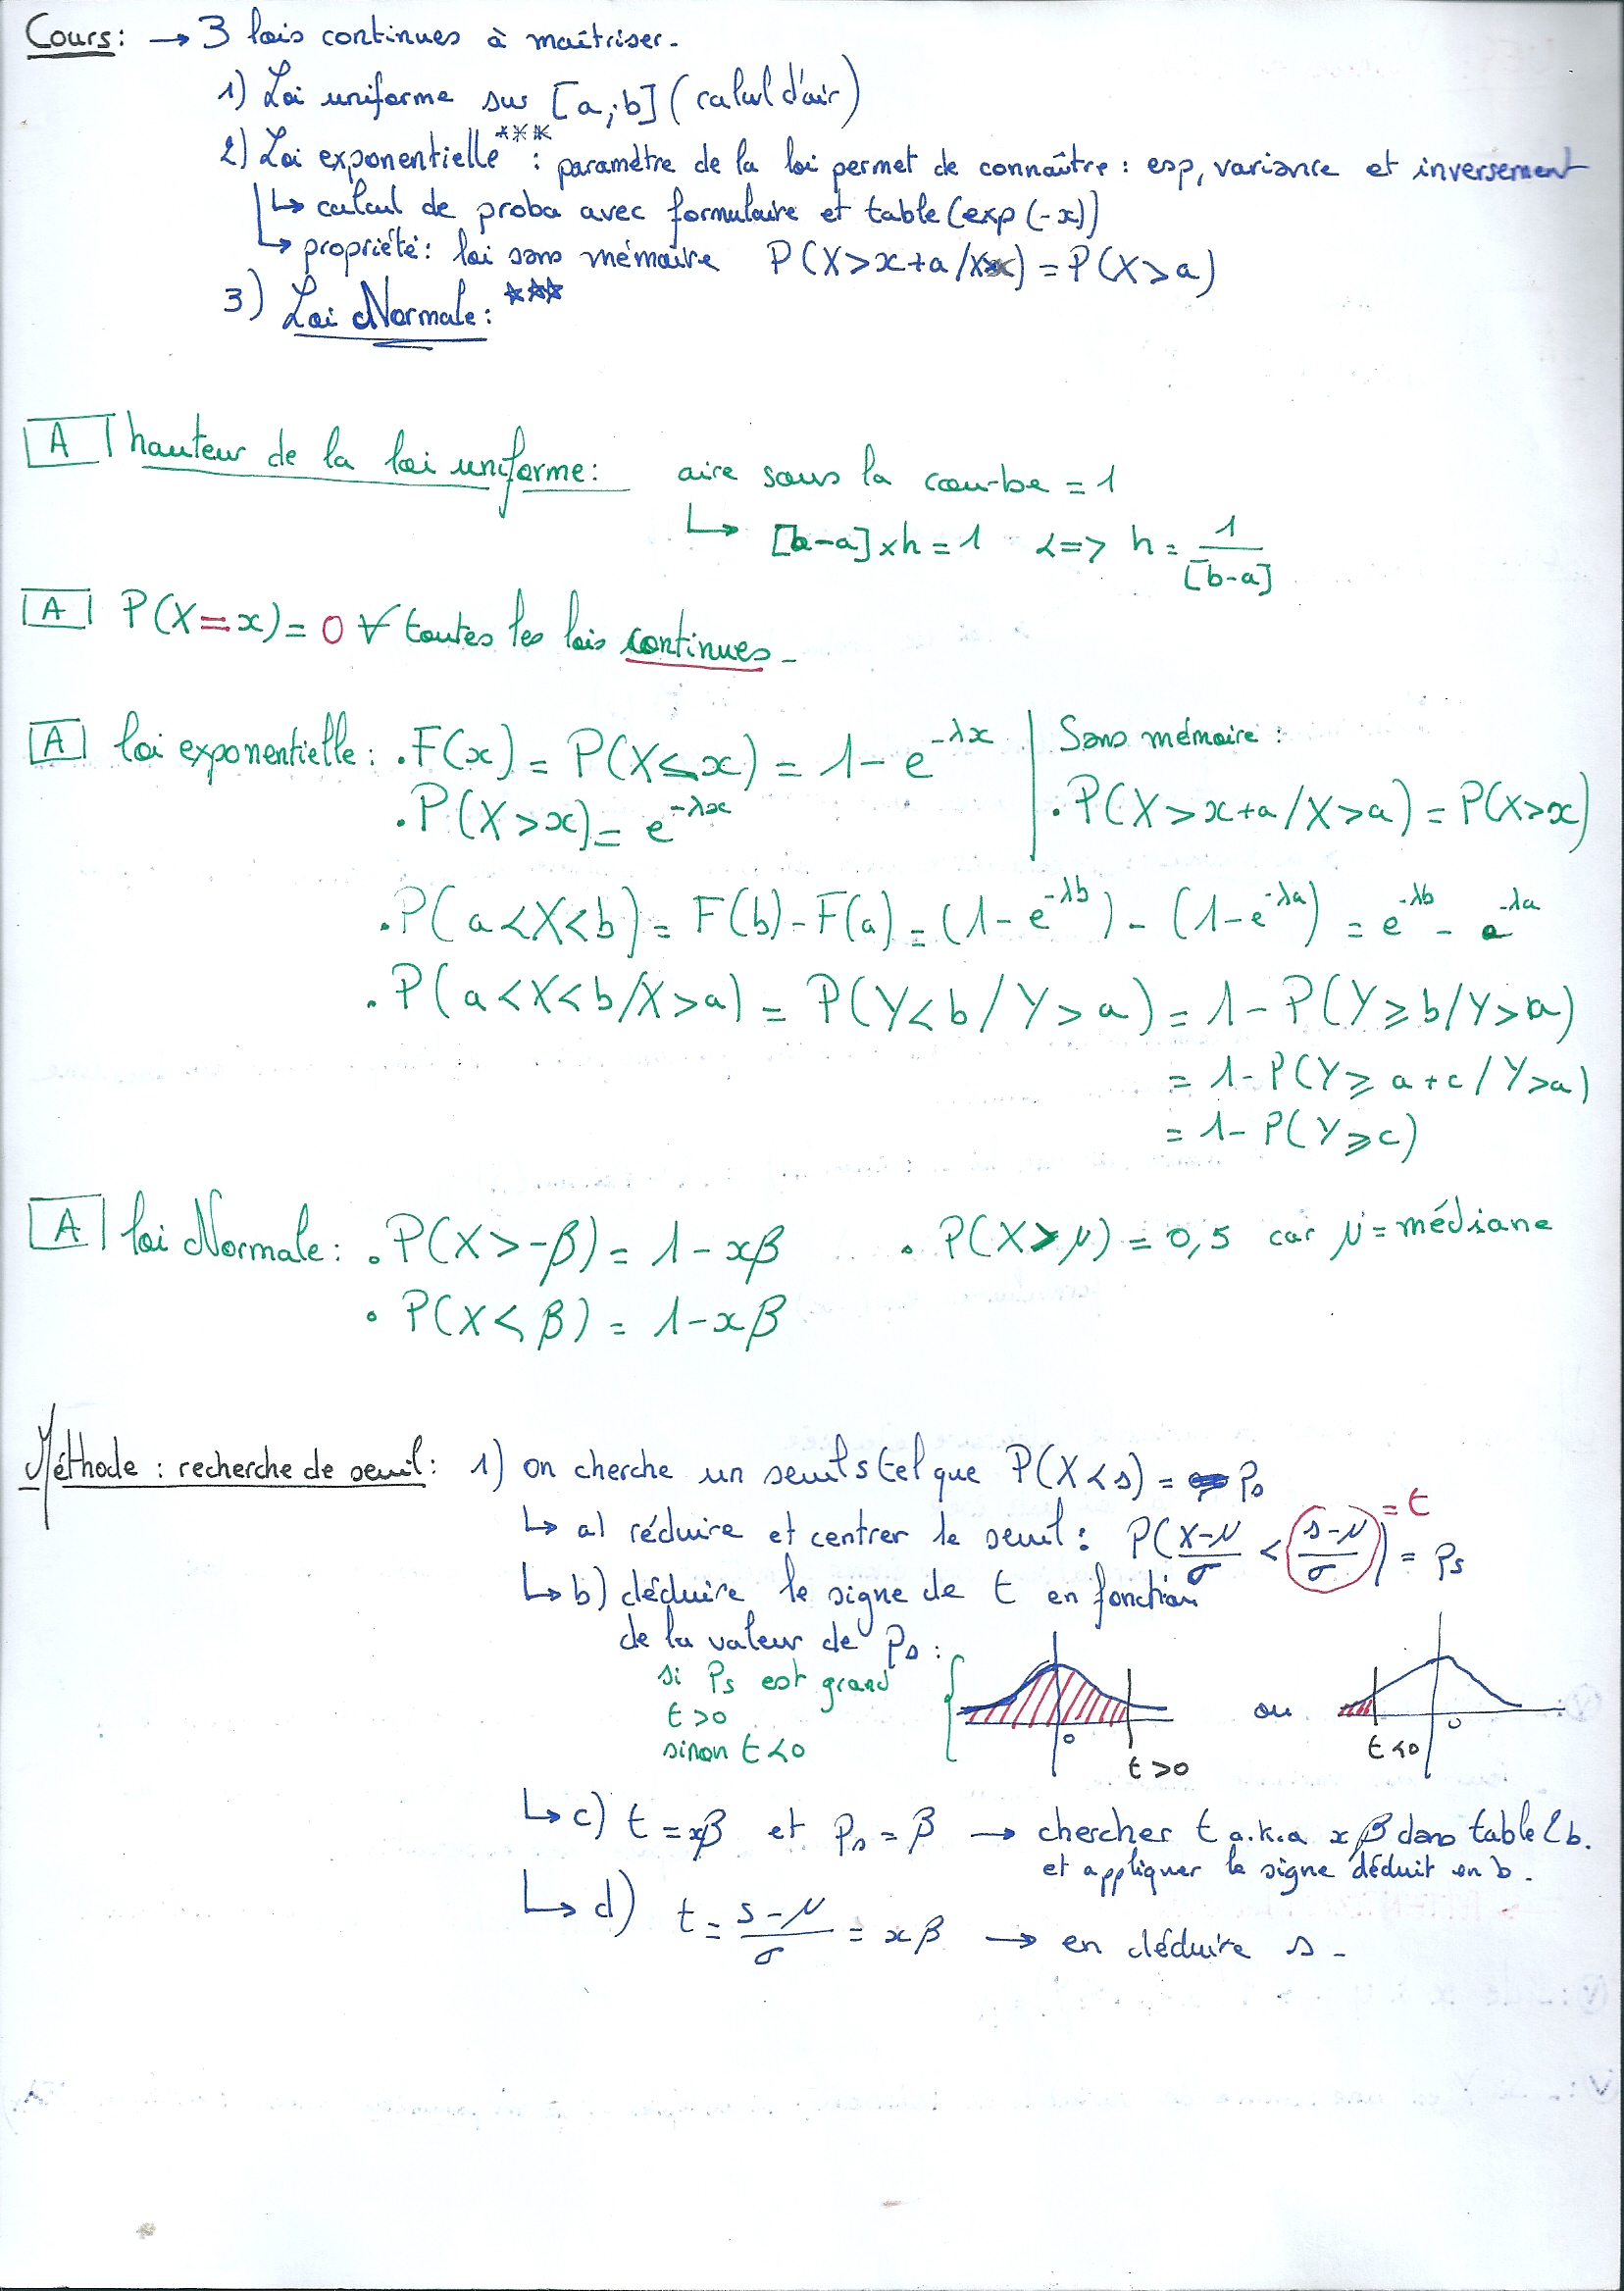 Cours: → 3 lois continues à maîtriser.
1) Loi uniforme sur [a;b] (calcul d'air)
2) Loi exponentielle***: paramètre de la loi permet de connaître : esp, variance et inversement
↳ calcul de proba avec formulaire et table (exp(-x))
↳ propriété: loi sans mémoire P(X>x+a/X>x) = P(X>a)
3) Loi Normale: ***
A hauteur de la loi uniforme: aire sous la courbe = 1
↳ [b-a]×h = 1 <=> h = 1/[b-a]
A P(X=x) = 0 ∀ toutes les lois continues.
A loi exponentielle: . F(x) = P(X≤x) = 1 - e^-λx | Sans mémoire :
. P(X>x) = e^-λx | . P(X>x+a/X>a) = P(X>x)
. P(a<X<b) = F(b) - F(a) = (1-e^-λb) - (1-e^-λa) = e^-λb - e^-λa
. P(a<X<b/X>a) = P(Y<b/Y>a) = 1 - P(Y⩾b/Y>a)
= 1 - P(Y⩾a+c/Y>a)
= 1 - P(Y⩾c)
A loi Normale: . P(X>-β) = 1 - xβ . P(X>μ) = 0,5 car μ = médiane
. P(X<β) = 1 - xβ
Méthode : recherche de seuil: 1) on cherche un seuil s tel que P(X<s) = Ps
↳ a) réduire et centrer le seuil: P((X-μ)/σ < (s-μ)/σ) = Ps = t
↳ b) déduire le signe de t en fonction
de la valeur de Ps :
si Ps est grand
t>0
sinon t<0
0 t>0 ou t<0 0
↳ c) t = xβ et Ps = β → chercher t a.k.a xβ dans table 2b.
et appliquer le signe déduit en b.
↳ d) t = (s-μ)/σ = xβ → en déduire s.